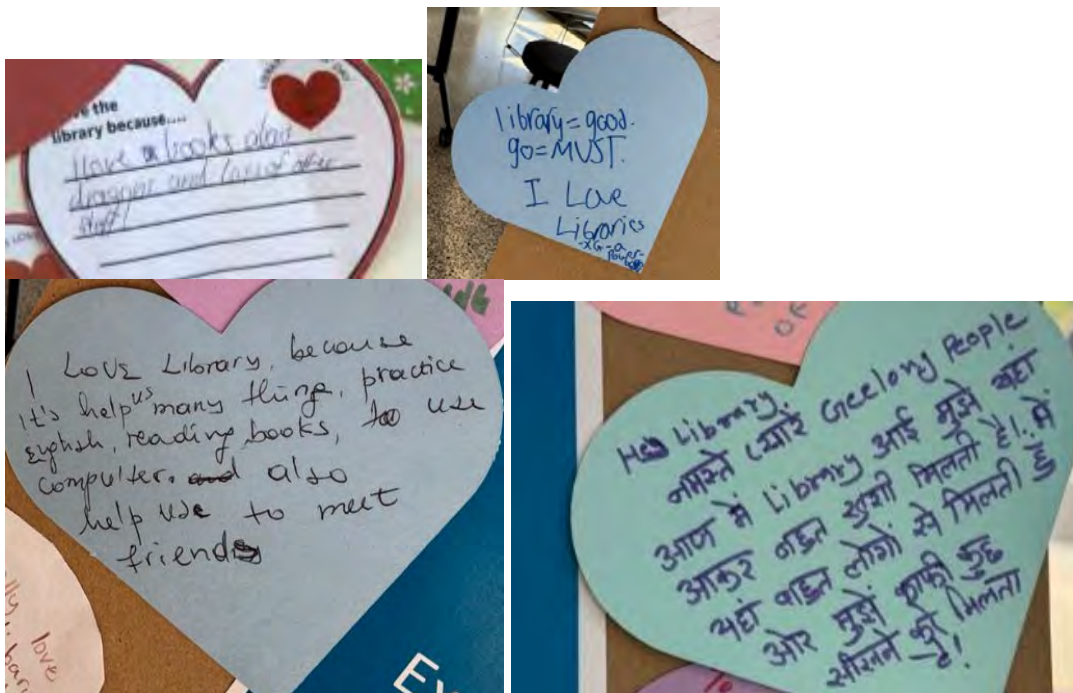 ve the
library because....
I love books about
dragons and lots of other
stuff!
library=good.
go=MUST.
I Love
Libraries
-XG-a
Power-
I LOVE Library, because
it's help us many thing, practice
English, reading books, to use
computer. and also
help use to meet
friends
Library,
नमस्ते प्यारे Geelong People
आज में Library आई मुझे यहां
आकर बहुत खुशी मिलती है!. में
यहां बहुत लोगों से मिलती हुँ
ओर मुझे काफी कुछ
सीखने को मिलता
है!
love
Ex